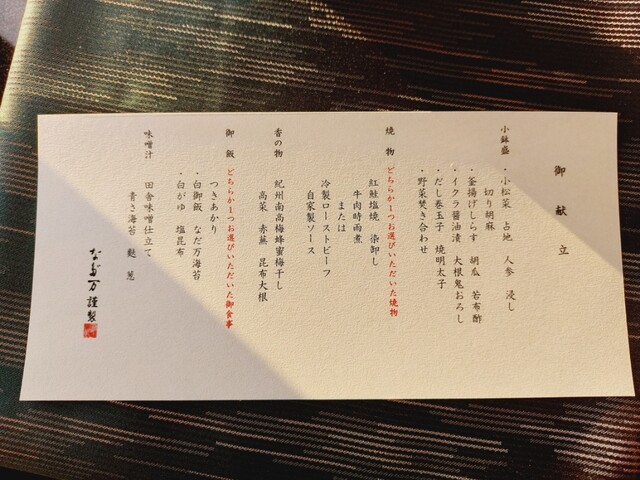 御献立
小鉢盛 ・小松菜 占地 人参 浸し
切り胡麻
・釜揚げしらす 胡瓜 若布酢
・イクラ醤油漬 大根鬼おろし
・だし巻玉子 焼明太子
・野菜焚き合わせ
焼物 どちらか一つお選びいただいた焼物
紅鮭塩焼 染卸し
牛肉時雨煮
または
冷製ローストビーフ
自家製ソース
香の物 紀州南高梅蜂蜜梅干し
高菜 赤蕪 昆布大根
御飯 どちらか一つお選びいただいた御食事
つきあかり
・白御飯 なだ万海苔
・白がゆ 塩昆布
味噌汁 田舎味噌仕立て
青さ海苔 麩 葱
なだ万謹製